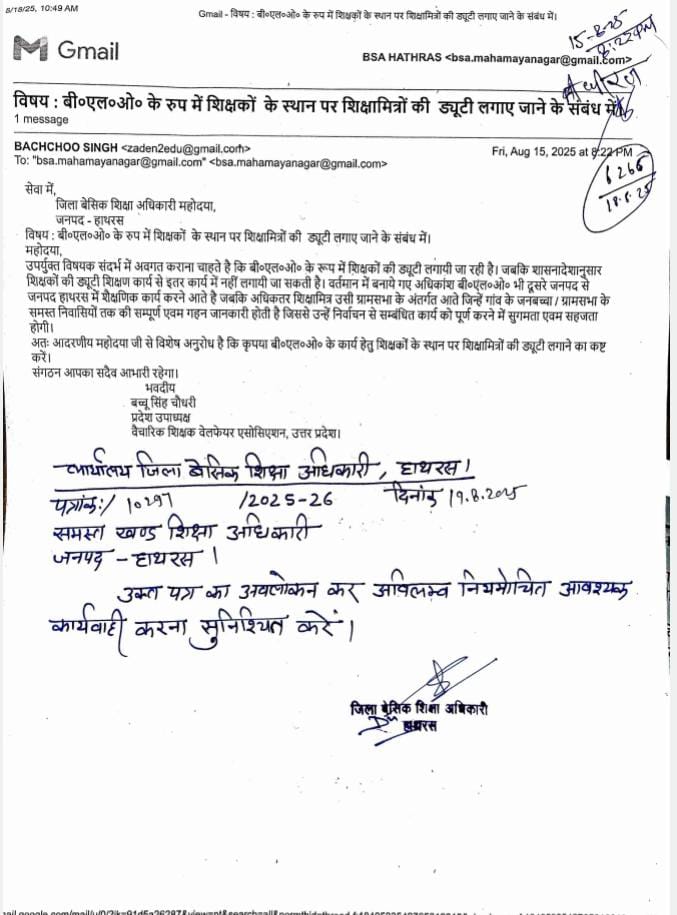 8/18/25, 10:49 AM
Gmail - विषय : बी०एल०ओ० के रुप में शिक्षकों के स्थान पर शिक्षामित्रों की ड्यूटी लगाए जाने के संबंध में।
15-8-25
8:22PM
Gmail
BSA HATHRAS <bsa.mahamayanagar@gmail.com>
विषय : बी०एल०ओ० के रुप में शिक्षकों के स्थान पर शिक्षामित्रों की ड्यूटी लगाए जाने के संबंध में।
1 message
BACHCHOO SINGH <zaden2edu@gmail.com>
Fri, Aug 15, 2025 at 8:22 PM
To: "bsa.mahamayanagar@gmail.com" <bsa.mahamayanagar@gmail.com>
6266
18.8.25
सेवा में,
जिला बेसिक शिक्षा अधिकारी महोदया,
जनपद - हाथरस
विषय : बी०एल०ओ० के रुप में शिक्षकों के स्थान पर शिक्षामित्रों की ड्यूटी लगाए जाने के संबंध में।
महोदया,
उपर्युक्त विषयक संदर्भ में अवगत कराना चाहते है कि बी०एल०ओ० के रूप में शिक्षकों की ड्यूटी लगायी जा रही है। जबकि शासनादेशानुसार
शिक्षकों की ड्यूटी शिक्षण कार्य से इतर कार्य में नहीं लगायी जा सकती है। वर्तमान में बनाये गए अधिकांश बी०एल०ओ० भी दूसरे जनपद से
जनपद हाथरस में शैक्षणिक कार्य करने आते है जबकि अधिकतर शिक्षामित्र उसी ग्रामसभा के अंतर्गत आते जिन्हें गांव के जनबच्चा / ग्रामसभा के
समस्त निवासियों तक की सम्पूर्ण एवम गहन जानकारी होती है जिससे उन्हें निर्वाचन से सम्बंधित कार्य को पूर्ण करने में सुगमता एवम सहजता
होगी।
अतः आदरणीय महोदया जी से विशेष अनुरोध है कि कृपया बी०एल०ओ० के कार्य हेतु शिक्षकों के स्थान पर शिक्षामित्रों की ड्यूटी लगाने का कष्ट
करें।
संगठन आपका सदैव आभारी रहेगा।
भवदीय
बच्चू सिंह चौधरी
प्रदेश उपाध्यक्ष
वैचारिक शिक्षक वेलफेयर एसोसिएशन, उत्तर प्रदेश।
कार्यालय जिला बेसिक शिक्षा अधिकारी, हाथरस।
पत्रांक:/ 10297 /2025-26 दिनांक 19.8.2025
समस्त खण्ड शिक्षा अधिकारी
जनपद - हाथरस।
उक्त पत्र का अवलोकन कर अविलम्ब नियमोचित आवश्यक
कार्यवाही करना सुनिश्चित करें।
जिला बेसिक शिक्षा अधिकारी
हाथरस